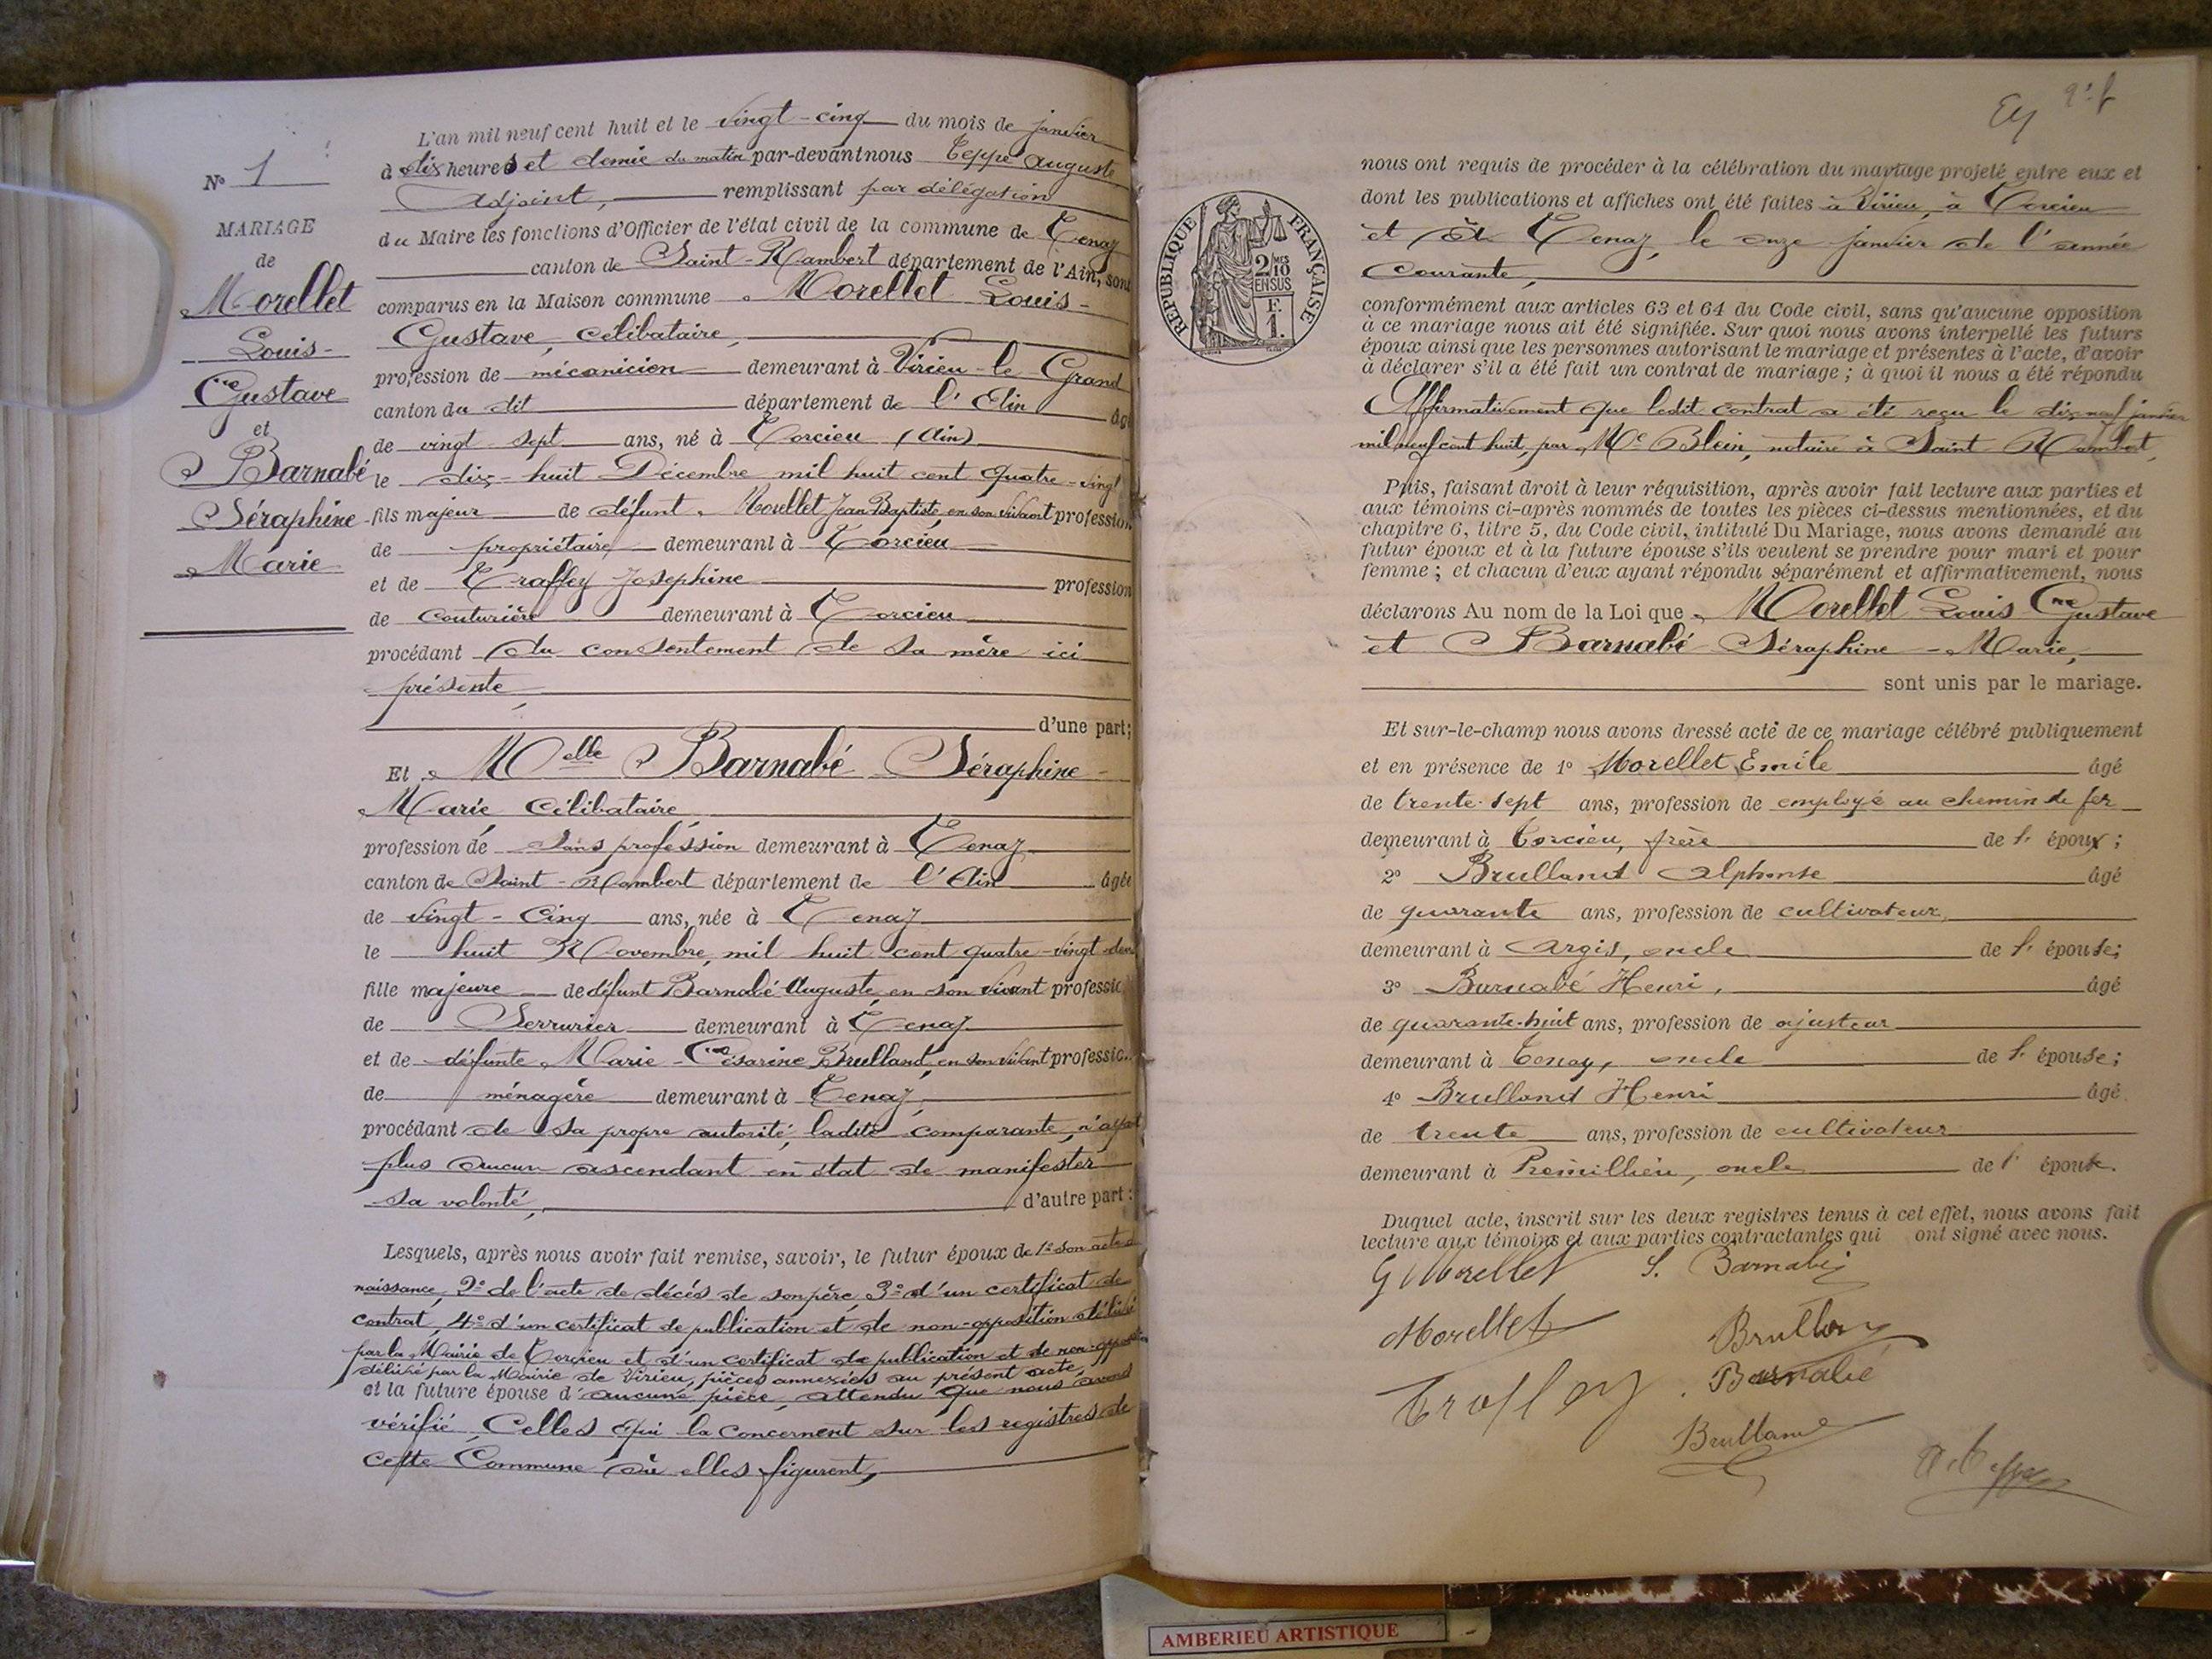 N° 1
MARIAGE
de
Morellet
Louis-
Gustave
et
Barnabé
Séraphine
Marie
L'an mil neuf cent huit et le vingt-cinq du mois de janvier
à dix heures et demie du matin par-devant nous Teppe Auguste
Adjoint, remplissant par délégation
du Maire les fonctions d'Officier de l'état civil de la commune de Tenay
canton de Saint-Rambert département de l'Ain, sont
comparus en la Maison commune Morellet Louis-
Gustave, célibataire,
profession de mécanicien demeurant à Virieu-le-Grand
canton du dit département de l'Ain âgé
de vingt-sept ans, né à Torcieu (Ain)
le dix-huit Décembre mil huit cent quatre-vingt
fils majeur de défunt Morellet Jean Baptiste, en son vivant profession
de propriétaire demeurant à Torcieu
et de Traffey Josephine profession
de couturière demeurant à Torcieu
procédant du consentement de sa mère ici
présente,
d'une part;
Et Melle Barnabé Séraphine-
Marie célibataire,
profession de sans profession demeurant à Tenay
canton de Saint-Rambert département de l'Ain âgée
de vingt-cinq ans, née à Tenay
le huit Novembre, mil huit cent quatre-vingt-deux
fille majeure de défunt Barnabé Auguste, en son vivant professio
de Serrurier demeurant à Tenay
et de défunte Marie-Césarine Brulland, en son vivant professio
de ménagère demeurant à Tenay,
procédant de sa propre autorité, ladite comparante, n'ayant
plus aucun ascendant en état de manifester
sa volonté, d'autre part:
Lesquels, après nous avoir fait remise, savoir, le futur époux de 1° son acte de
naissance, 2° de l'acte de décès de son père, 3° d'un certificat de
contrat, 4° d'un certificat de publication et de non-opposition délivré
par la Mairie de Torcieu et d'un certificat de publication et de non-opposition
délivré par la Mairie de Virieu, pièces annexées au présent acte,
et la future épouse d'aucune pièce, attendu que nous avons
vérifié Celles qui la concernent sur les registres de
cette Commune où elles figurent,
RÉPUBLIQUE FRANÇAISE
2 MES
10
EN SUS
F.
1.
nous ont requis de procéder à la célébration du mariage projeté entre eux et
dont les publications et affiches ont été faites à Virieu, à Torcieu
et à Tenay, le onze janvier de l'année
courante,
conformément aux articles 63 et 64 du Code civil, sans qu'aucune opposition
à ce mariage nous ait été signifiée. Sur quoi nous avons interpellé les futurs
époux ainsi que les personnes autorisant le mariage et présentes à l'acte, d'avoir
à déclarer s'il a été fait un contrat de mariage; à quoi il nous a été répondu
Affirmativement que ledit contrat a été reçu le dix-neuf janvier
mil neuf cent huit, par Me Blein, notaire à Saint Rambert,
Puis, faisant droit à leur réquisition, après avoir fait lecture aux parties et
aux témoins ci-après nommés de toutes les pièces ci-dessus mentionnées, et du
chapitre 6, titre 5, du Code civil, intitulé Du Mariage, nous avons demandé au
futur époux et à la future épouse s'ils veulent se prendre pour mari et pour
femme; et chacun d'eux ayant répondu séparément et affirmativement, nous
déclarons Au nom de la Loi que Morellet Louis Gustave
et Barnabé Séraphine-Marie,
sont unis par le mariage.
Et sur-le-champ nous avons dressé acte de ce mariage célébré publiquement
et en présence de 1° Morellet Emile âgé
de trente-sept ans, profession de employé au chemin de fer
demeurant à Torcieu, frère de l' époux;
2° Brulland Alphonse âgé
de quarante ans, profession de cultivateur,
demeurant à Argis, oncle de l' épouse;
3° Barnabé Henri, âgé
de quarante-huit ans, profession de ajusteur
demeurant à Tenay, oncle de l' épouse;
4° Brulland Henri âgé
de trente ans, profession de cultivateur
demeurant à Prémillieu, oncle de l' épouse.
Duquel acte, inscrit sur les deux registres tenus à cet effet, nous avons fait
lecture aux témoins et aux parties contractantes qui ont signé avec nous.
G Morellet S. Barnabé
Morellet Brulland
Traffey Barnabé
Brulland
A Teppe
AMBERIEU ARTISTIQUE